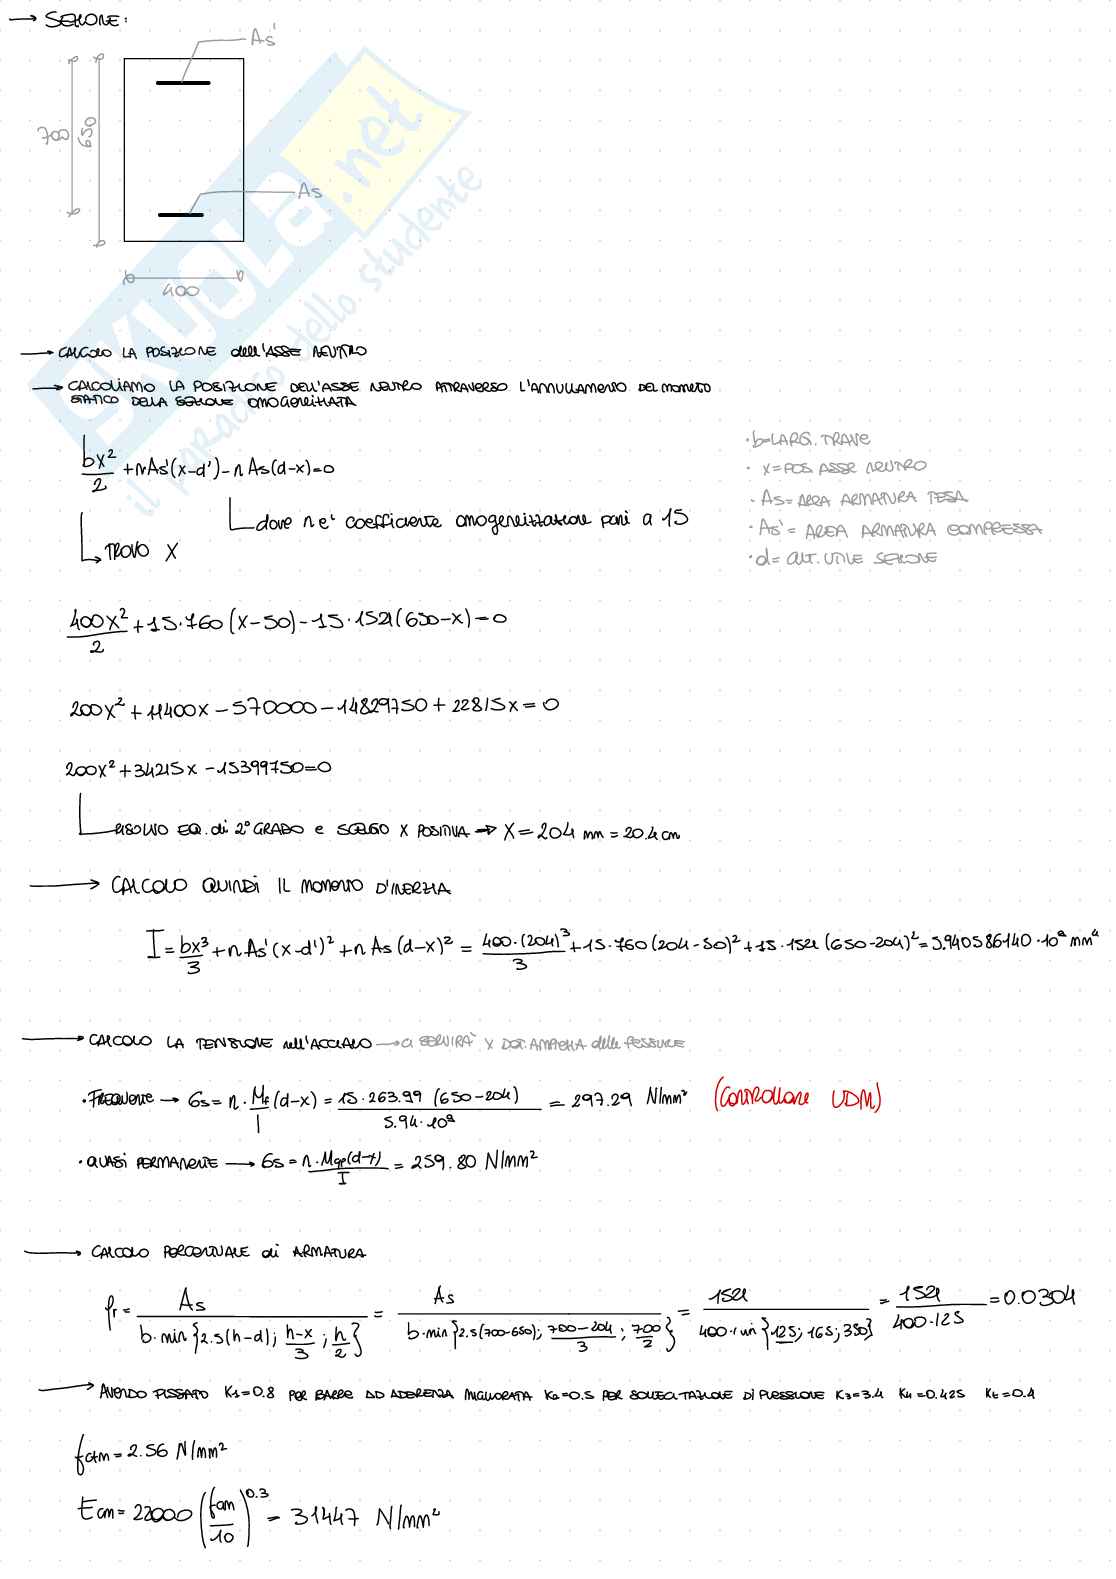 → SEZIONE:
As'
700
650
As
400
SKUOLA.net
il paradiso dello studente
→ CALCOLO LA POSIZIONE dell'ASSE NEUTRO
→ CALCOLIAMO LA POSIZIONE DELL'ASSE NEUTRO ATTRAVERSO L'ANNULLAMENTO DEL MOMENTO
STATICO DELLA SEZIONE OMOGENEIZZATA
bx²/2 + nAs'(x-d') - nAs(d-x) = 0
dove n e' coefficiente omogeneizzazione pari a 15
TROVO X
• b=LARG. TRAVE
• x=POS ASSE NEUTRO
• As= AREA ARMATURA TESA
• As'= AREA ARMATURA COMPRESSA
• d= ALT. UTILE SEZIONE
400x²/2 + 15·760 (x-50) - 15·1521(650-x) = 0
200x² + 11400x - 570000 - 14829750 + 22815x = 0
200x² + 34215x - 15399750 = 0
RISOLVO EQ. di 2° GRADO e SCELGO X POSITIVA → X = 204 mm = 20.4 cm
→ CALCOLO QUINDI IL MOMENTO D'INERZIA
I = bx³/3 + nAs'(x-d')² + nAs(d-x)² = 400·(204)³/3 + 15·760(204-50)² + 15·1521(650-204)² = 5.940586140·10⁹ mm⁴
→ CALCOLO LA TENSIONE nell'ACCIAIO → CI SERVIRA' X DET. AMPIEZZA delle FESSURE
• FREQUENTE → σs = n·Mf/I (d-x) = 15·263.99 (650-204)/5.94·10⁹ = 297.29 N/mm² (CONTROLLARE UDM)
• QUASI PERMANENTE → σs = n·Mqp(d-x)/I = 259.80 N/mm²
→ CALCOLO PERCENTUALE di ARMATURA
ρr = As/b·min{2.5(h-d); h-x/3; h/2} = As/b·min{2.5(700-650); 700-204/3; 700/2} = 1521/400·min{125; 165; 350} = 1521/400·125 = 0.0304
→ AVENDO FISSATO K1=0.8 PER BARRE AD ADERENZA MIGLIORATA K2=0.5 PER SOLLECITAZIONE DI FLESSIONE K3=3.4 K4=0.425 Kt=0.4
fctm = 2.56 N/mm²
Ecm = 22000 (fcm/10)^0.3 = 31447 N/mm²